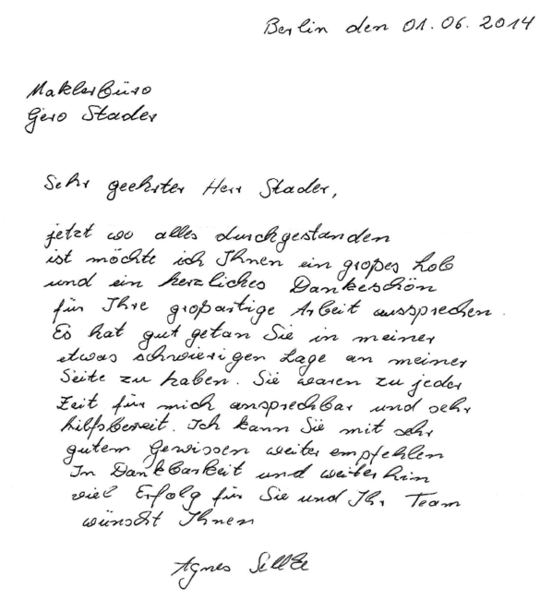 Berlin den 01.06.2014
Maklerbüro
Gero Stader
Sehr geehrter Herr Stader,
jetzt wo alles durchgestanden
ist möchte ich Ihnen ein großes Lob
und ein herzliches Dankeschön
für Ihre großartige Arbeit aussprechen.
Es hat gut getan Sie in meiner
etwas schwierigen Lage an meiner
Seite zu haben. Sie waren zu jeder
Zeit für mich ansprechbar und sehr
hilfsbereit. Ich kann Sie mit sehr
gutem Gewissen weiter empfehlen
In Dankbarkeit und weiterhin
viel Erfolg für Sie und Ihr Team
wünscht Ihnen
Agnes